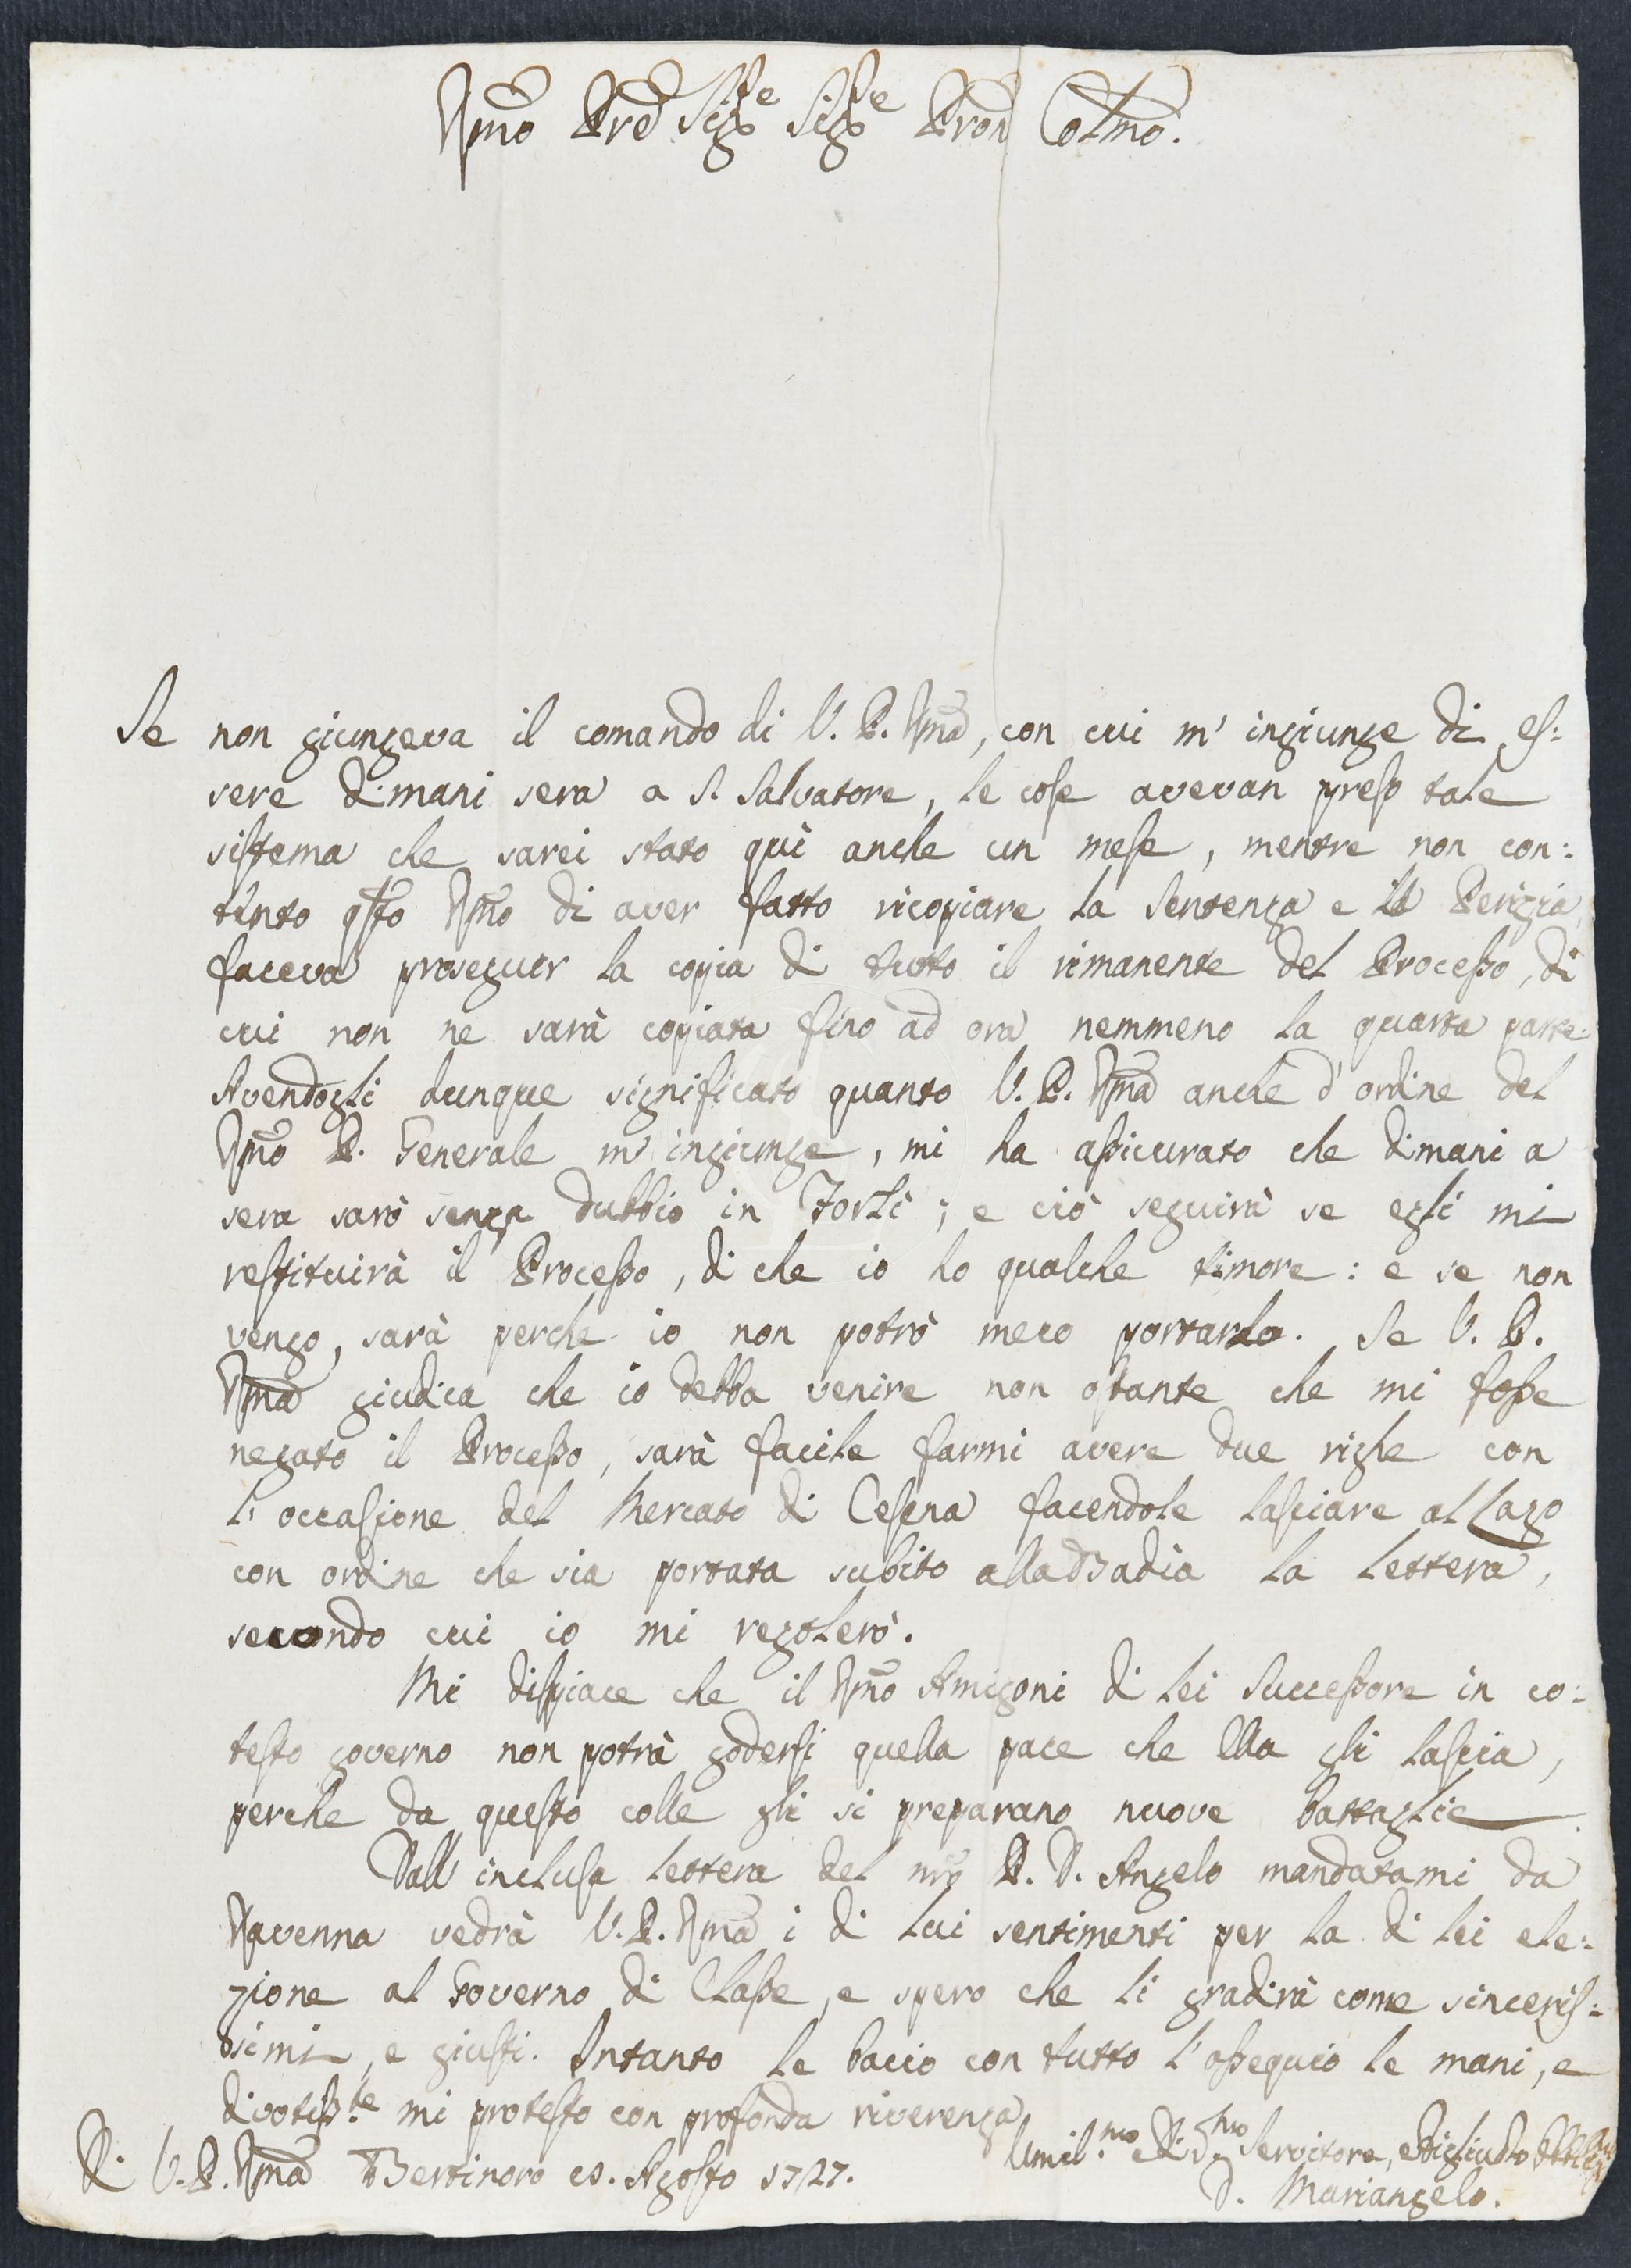 Rmo Pre Sigre Sigre Pron Colmo.
Se non giungeva il comando di V. P. Rma, con cui m' ingiunge di es:
sere dimani sera a S. Salvatore, le cose avevan preso tale
sistema che sarei stato quì anche un mese, mentre non con:
tento qsto Rmo di aver fatto ricopiare la Sentenza e la Perizia
faceva proseguir la copia di tutto il rimanente del Processo, di
cui non ne sarà copiata fino ad ora nemmeno la quarta parte.
Avendogli dunque significato quanto V. P. Rma anche d' ordine del
Rmo P. Generale m' ingiunge, mi ha assicurato che dimani a
sera sarò senza dubbio in Forlì; e ciò seguirà se egli mi
restituirà il Processo, di che io ho qualche timore: e se non
vengo, sarà perche io non potrò meco portarlo. Se V. P.
Rma giudica che io debba venire non ostante che mi fosse
negato il Processo, sarà facile farmi avere due righe con
l' occasione del Mercato di Cesena facendole lasciare al Lago
con ordine che sia portata subito alla Badìa la lettera,
secondo cui io mi regolerò.
Mi dispiace che il Rmo Amigoni di lei Successore in co:
testo governo non potrà godersi quella pace che Ella gli lascia,
perche da questo colle gli si preparano nuove battaglie
Dall' inclusa lettera del nro P. D. Angelo mandatami da
Ravenna vedrà V. P. Rma i di lui sentimenti per la di lei ele:
zione al Governo di Classe, e spero che li gradirà come sinceris:
simi, e giusti. Intanto le bacio con tutto l' ossequio le mani, e
divotisste mi protesto con profonda riverenza
Di V. P. Rma Bertinoro 10. Agosto 1727.
Umil.mo Servitore, e Figliuolo
D. Mariangelo.